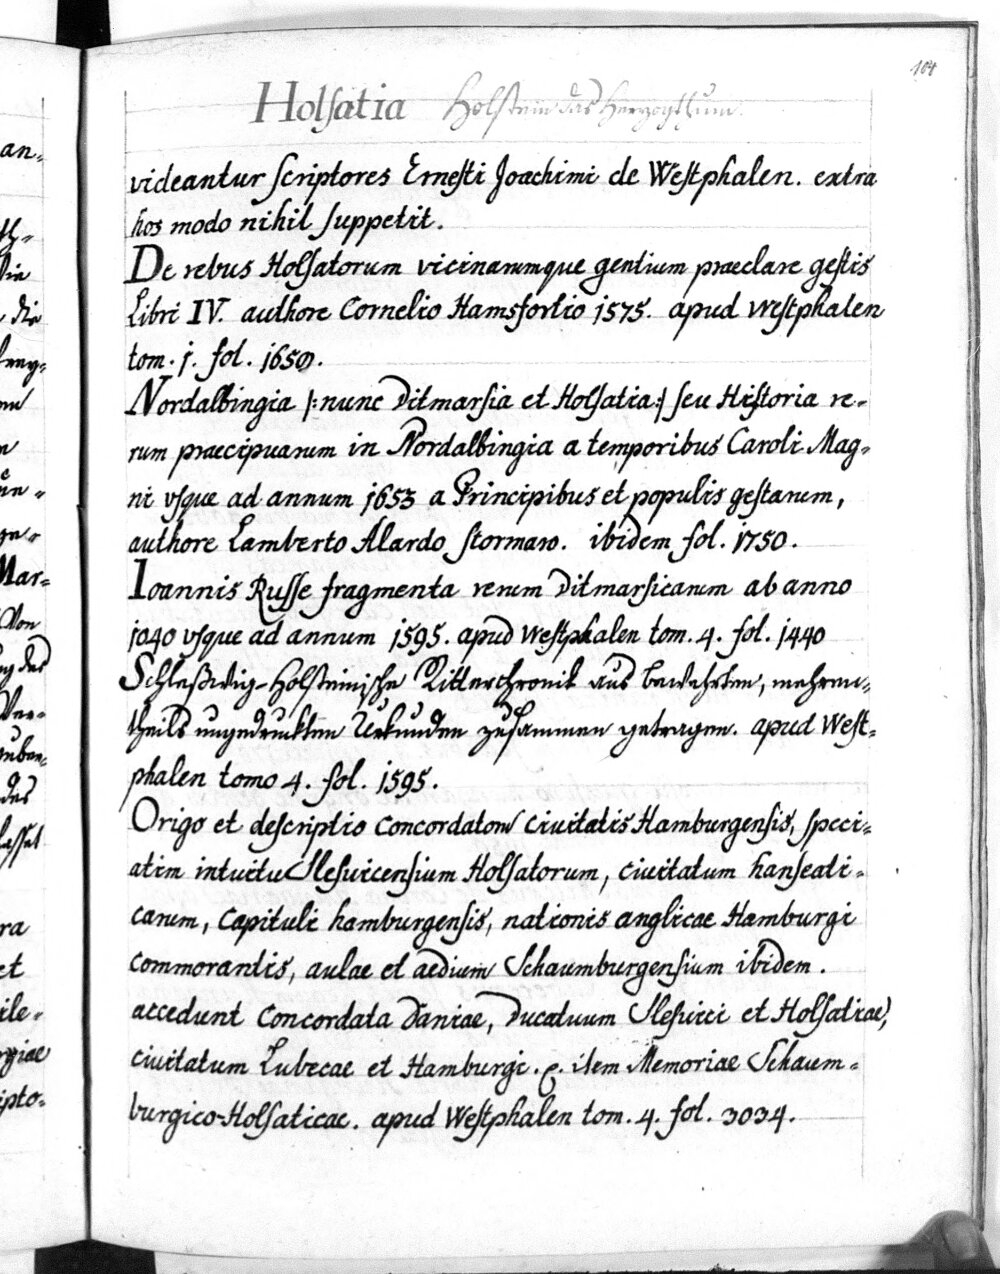 104
Holsatia Holstein das Herzogthum.
videantur scriptores Ernesti Joachimi de Westphalen. extra
hos modo nihil suppetit.
De rebus Holsatorum vicinarumque gentium praeclare gestis
Libri IV. authore Cornelio Hamsfortio 1575. apud Westphalen
tom. 1. fol. 1650.
Nordalbingia |: nunc Ditmarsia et Holsatia :| seu Historia re-
rum praecipuarum in Nordalbingia a temporibus Caroli Mag-
ni vsque ad annum 1653 a Principibus et populis gestarum,
authore Lamberto Alardo Storman. ibidem fol. 1750.
Ioannis Russe fragmenta rerum Ditmarsicarum ab anno
1040 vsque ad annum 1595. apud Westphalen tom. 4. fol. 1440
Schleßwig-Holsteinische Ritterchronik aus bewehrten, mehren-
theils ungedruckten Urkunden zusammen getragen. apud West-
phalen tomo 4. fol. 1595.
Origo et descriptio Concordatorum Ciuitatis Hamburgensis, speci-
atim intuitu Slesuicensium Holsatorum, ciuitatum hanseati-
carum, Capituli hamburgensis, nationis anglicae Hamburgi
commorantis, aulae et aedium Schaumburgensium ibidem.
accedunt Concordata Daniae, Ducatuum Slesuici et Holsatiae,
ciuitatum Lubecae et Hamburgi. item Memoriae Schaum-
burgico-Holsaticae. apud Westphalen tom. 4. fol. 3034.